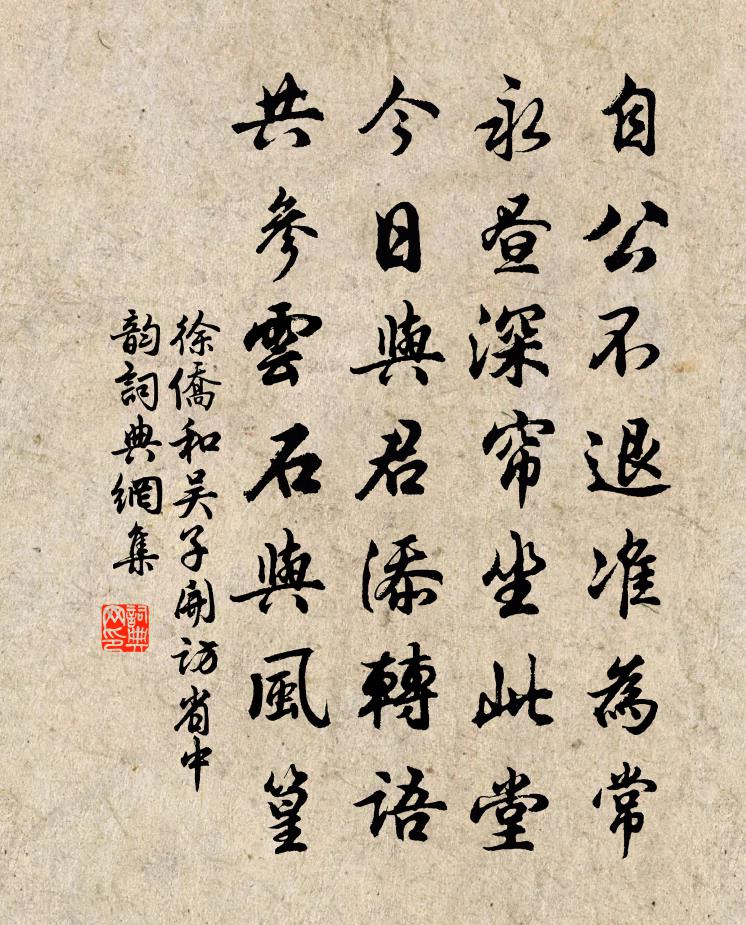 自公不退准為常
永晝深帘坐此堂
今日與君添轉語
共參雲石與風篁
徐僑和吴子開訪省中
韵詞典網集
詞典
网印